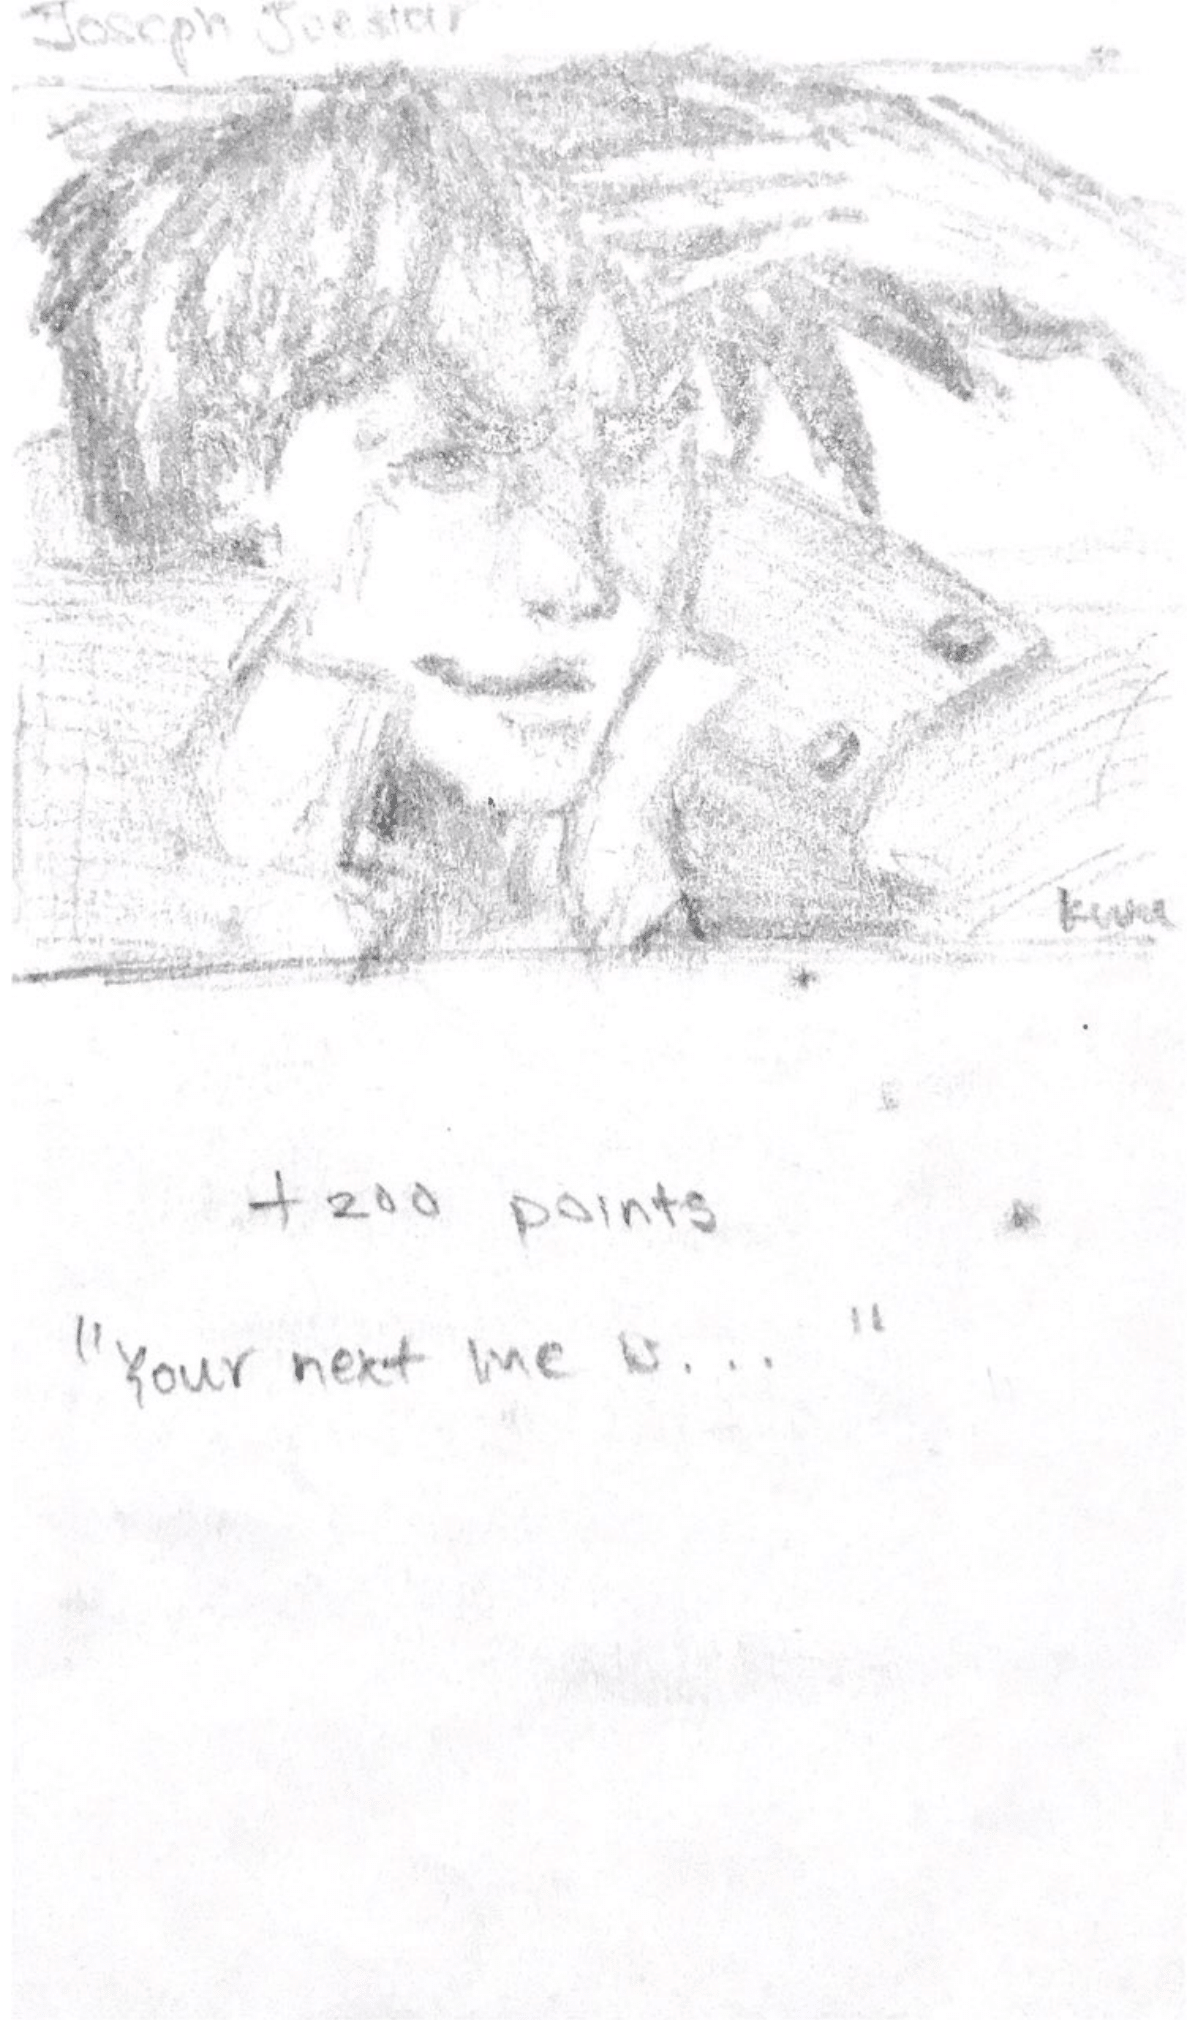 Joseph Joestar
+200 points
"Your next line is..."